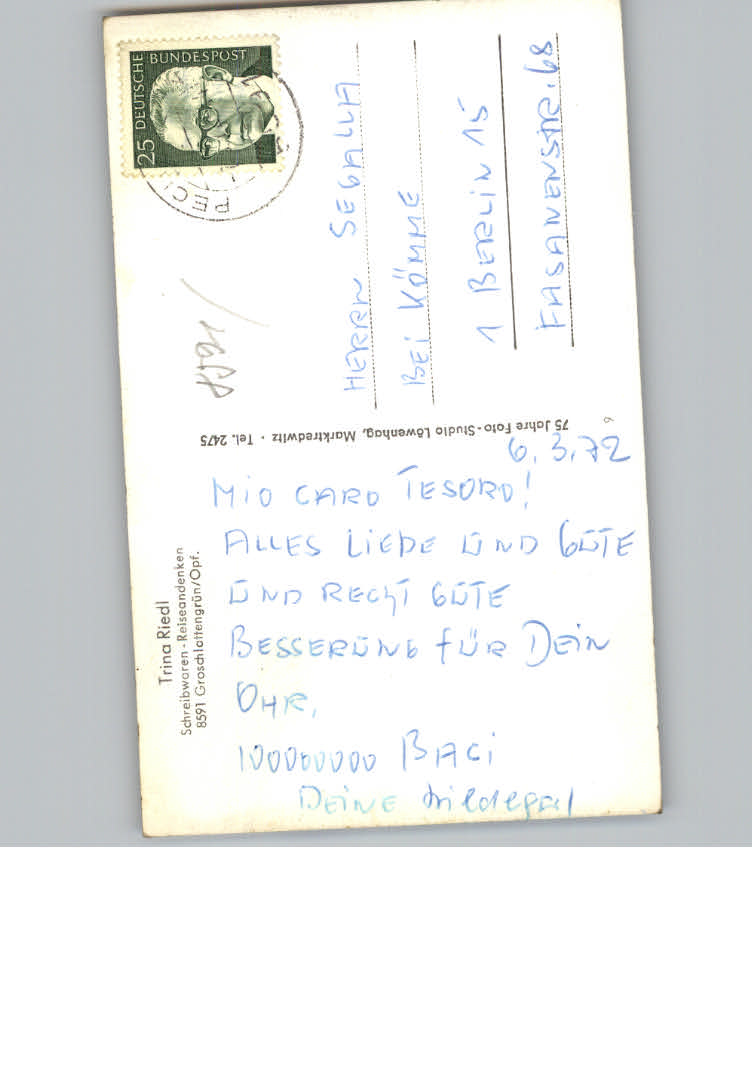 25 DEUTSCHE BUNDESPOST
HERRN SEGALLA
BEI KÖMME
1 BERLIN 15
FASANENSTR. 68
8591
75 Jahre Foto-Studio Löwenhag, Marktredwitz · Tel. 2475
Trina Riedl
Schreibwaren - Reiseandenken
8591 Groschlattengrün/Opf.
6.3.72
MIO CARO TESORO!
ALLES LIEBE UND GUTE
UND RECHT GUTE
BESSERUNG FÜR DEIN
OHR,
100000000 BACI
DEINE Hildegard